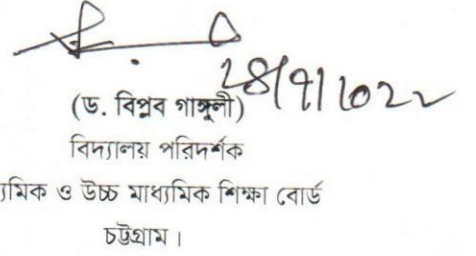 28/9/2022
(ড. বিপ্লব গাঙ্গুলী)
বিদ্যালয় পরিদর্শক
্যমিক ও উচ্চ মাধ্যমিক শিক্ষা বোর্ড
চট্টগ্রাম।